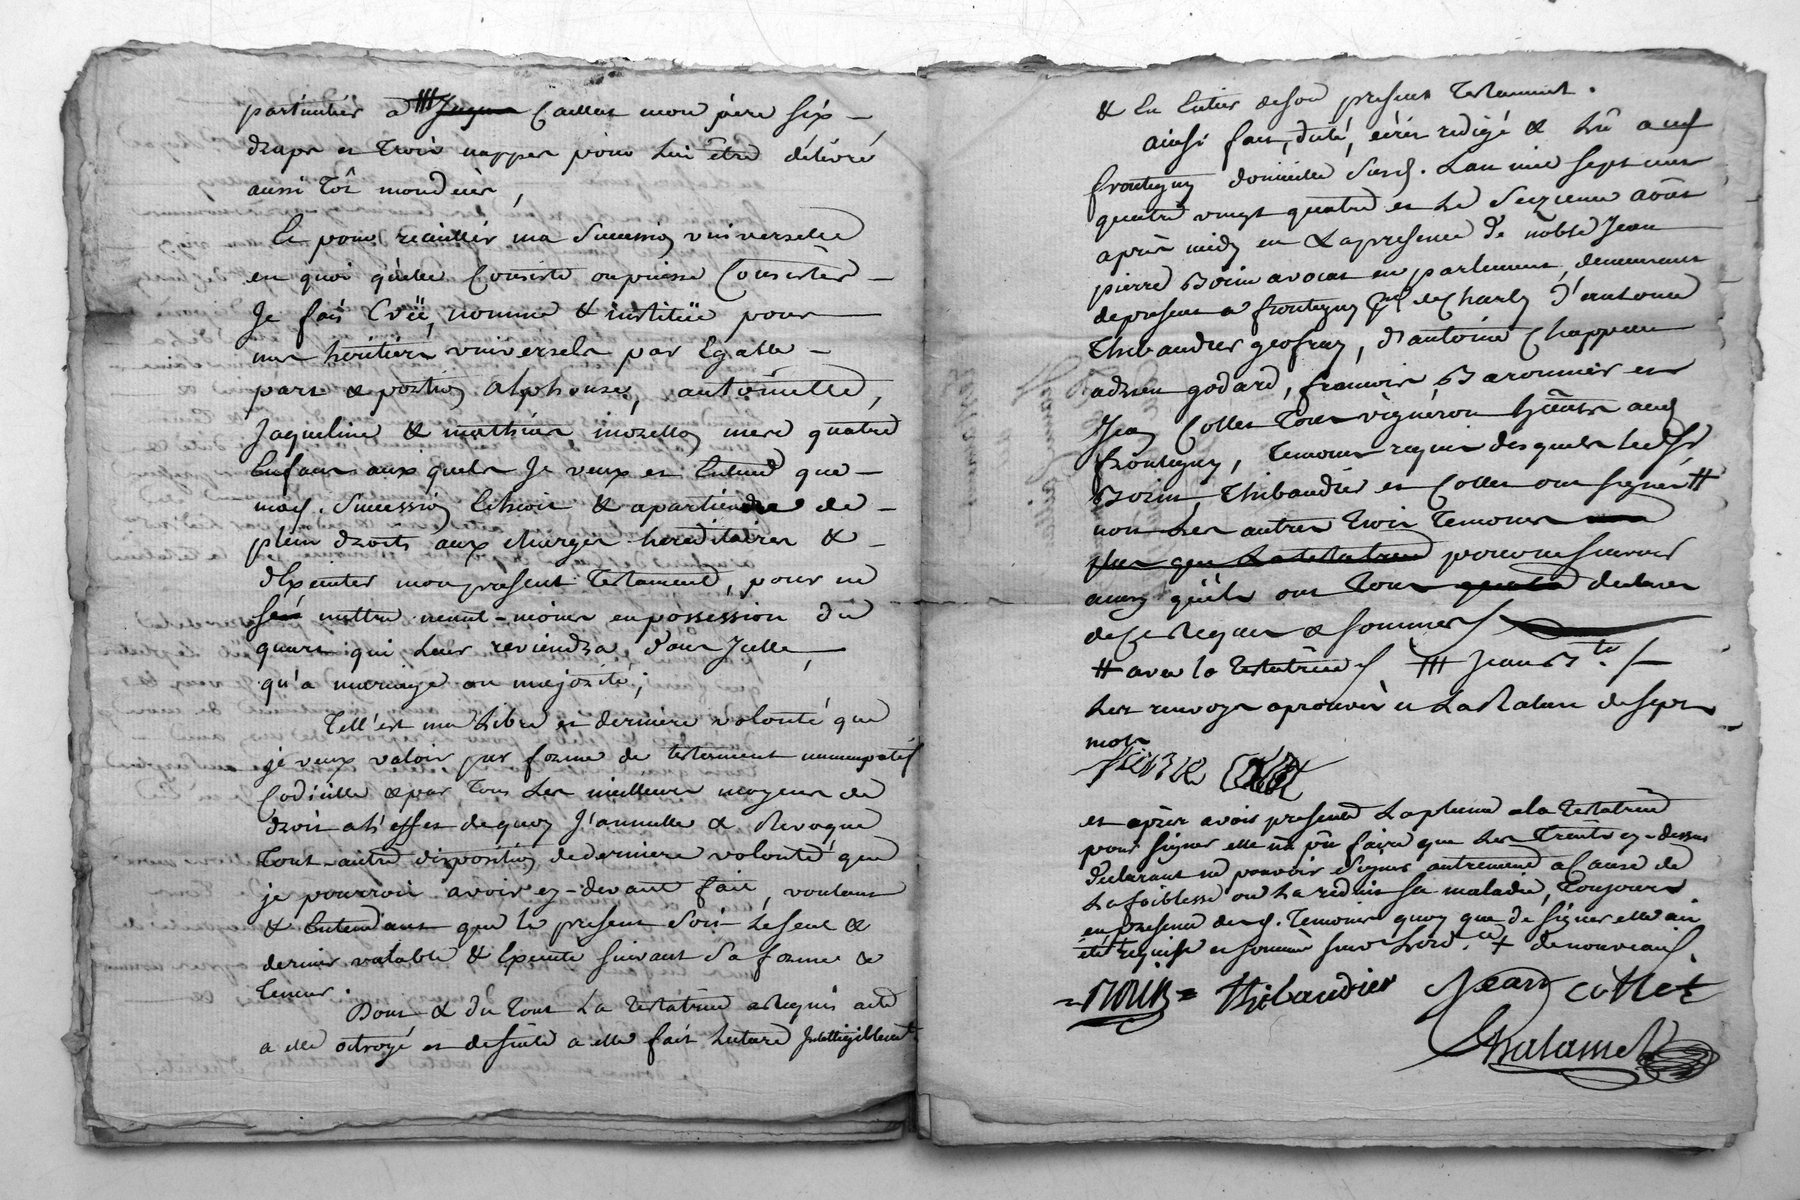 particulier a ⧻ Jaques Caillat mon père six
draps et trois nappes pour lui être délivré
aussi tôt mon décès,
Et pour recuillir ma Succession universelle
en quoi qu'elle Consiste ou puisse Consister
Je fais Créé, nomme & instituë pour
mes héritiers universels par Egalle
part & portion Alphonse, antoinette,
Jaqueline & mathieu mozellon mes quatre
Enfans aux quels Je veux et Entend que
mad. Succession Echoir & apartiendra de
plein droits aux charges hereditaires &
d'Exécuter mon present Testament, pour ne
se mettre neant-moins en possession du
quart qui leur reviendra d'our Icelle,
qu'a mariage ou majorité;
Tell'est ma Libre et derniere volonté que
je veux valoir par forme de testament nunncupatif
Codicille & par Tous Les meilleurs moyens de
droit a l'effet de quoy J'annulle & Revoque
Tout-autre disposition de derniere volonté que
je pourrois avoir cy-devant fait, voulant
& Entendant que le present Soit Le seul &
dernier valable & Execute suivant Sa forme &
teneur.
Dont & du Tout La Testatrice a Requis acte
a elle octroyé et desuite a elle fait Lecture Intelligiblement
& En Entier de son present Testament.
ainsi fait, dicté, écrit redigé & Lû aud
frontigny domicille Susd. L'an mil sept cent
quatre vingt quatre et Le Seizieme août
après midy en La presence de noble Jean
pierre Boin avocat en parlement, demeurant
depresent a frontigny de Charly d'antoine
Thibaudier geofray, d'antoine Chappeau
adrien godard, francois Baronnier et
Jean Collet Tous vignéron aud
frontigny, Temoins requis desquels led. Sr
Boin, Thibaudier et Collet ont signé ⧺
non Les autres trois Temoins
plus que La testatrice pour ne scavoir
ainsy qu'ils ont Tous quatre declaré
de Ce Requis & sommés
⧺ avec la Testatrice / ⧻ Jean Bte /
Les renvoys aprouvés et La Rature de sept
mots

et après avoir presenté La plume a la Testatrice
pour signer elle n'a pû faire que Les Traits cy-dessus
declarant ne pouvoir Signer autrement a Cause de
La foiblesse ou La reduit sa maladie, Toujours
en presence desd. Temoins quoy que de signer elle ai
été requise et sommée suiv. L'ord.ce + denouveau
= BOIN = Thibaudier Jean Collet
Chalamel